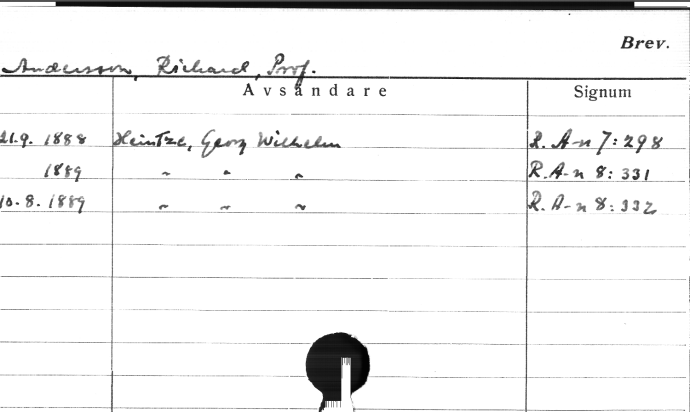 Brev.
Andersson, Richard, Prof.
Avsändare Signum
21.9. 1888 Heintze, Georg Wilhelm R. A-n 7: 298
1889 " " " R. A-n 8: 331
10.8. 1889 " " " R. A-n 8: 332